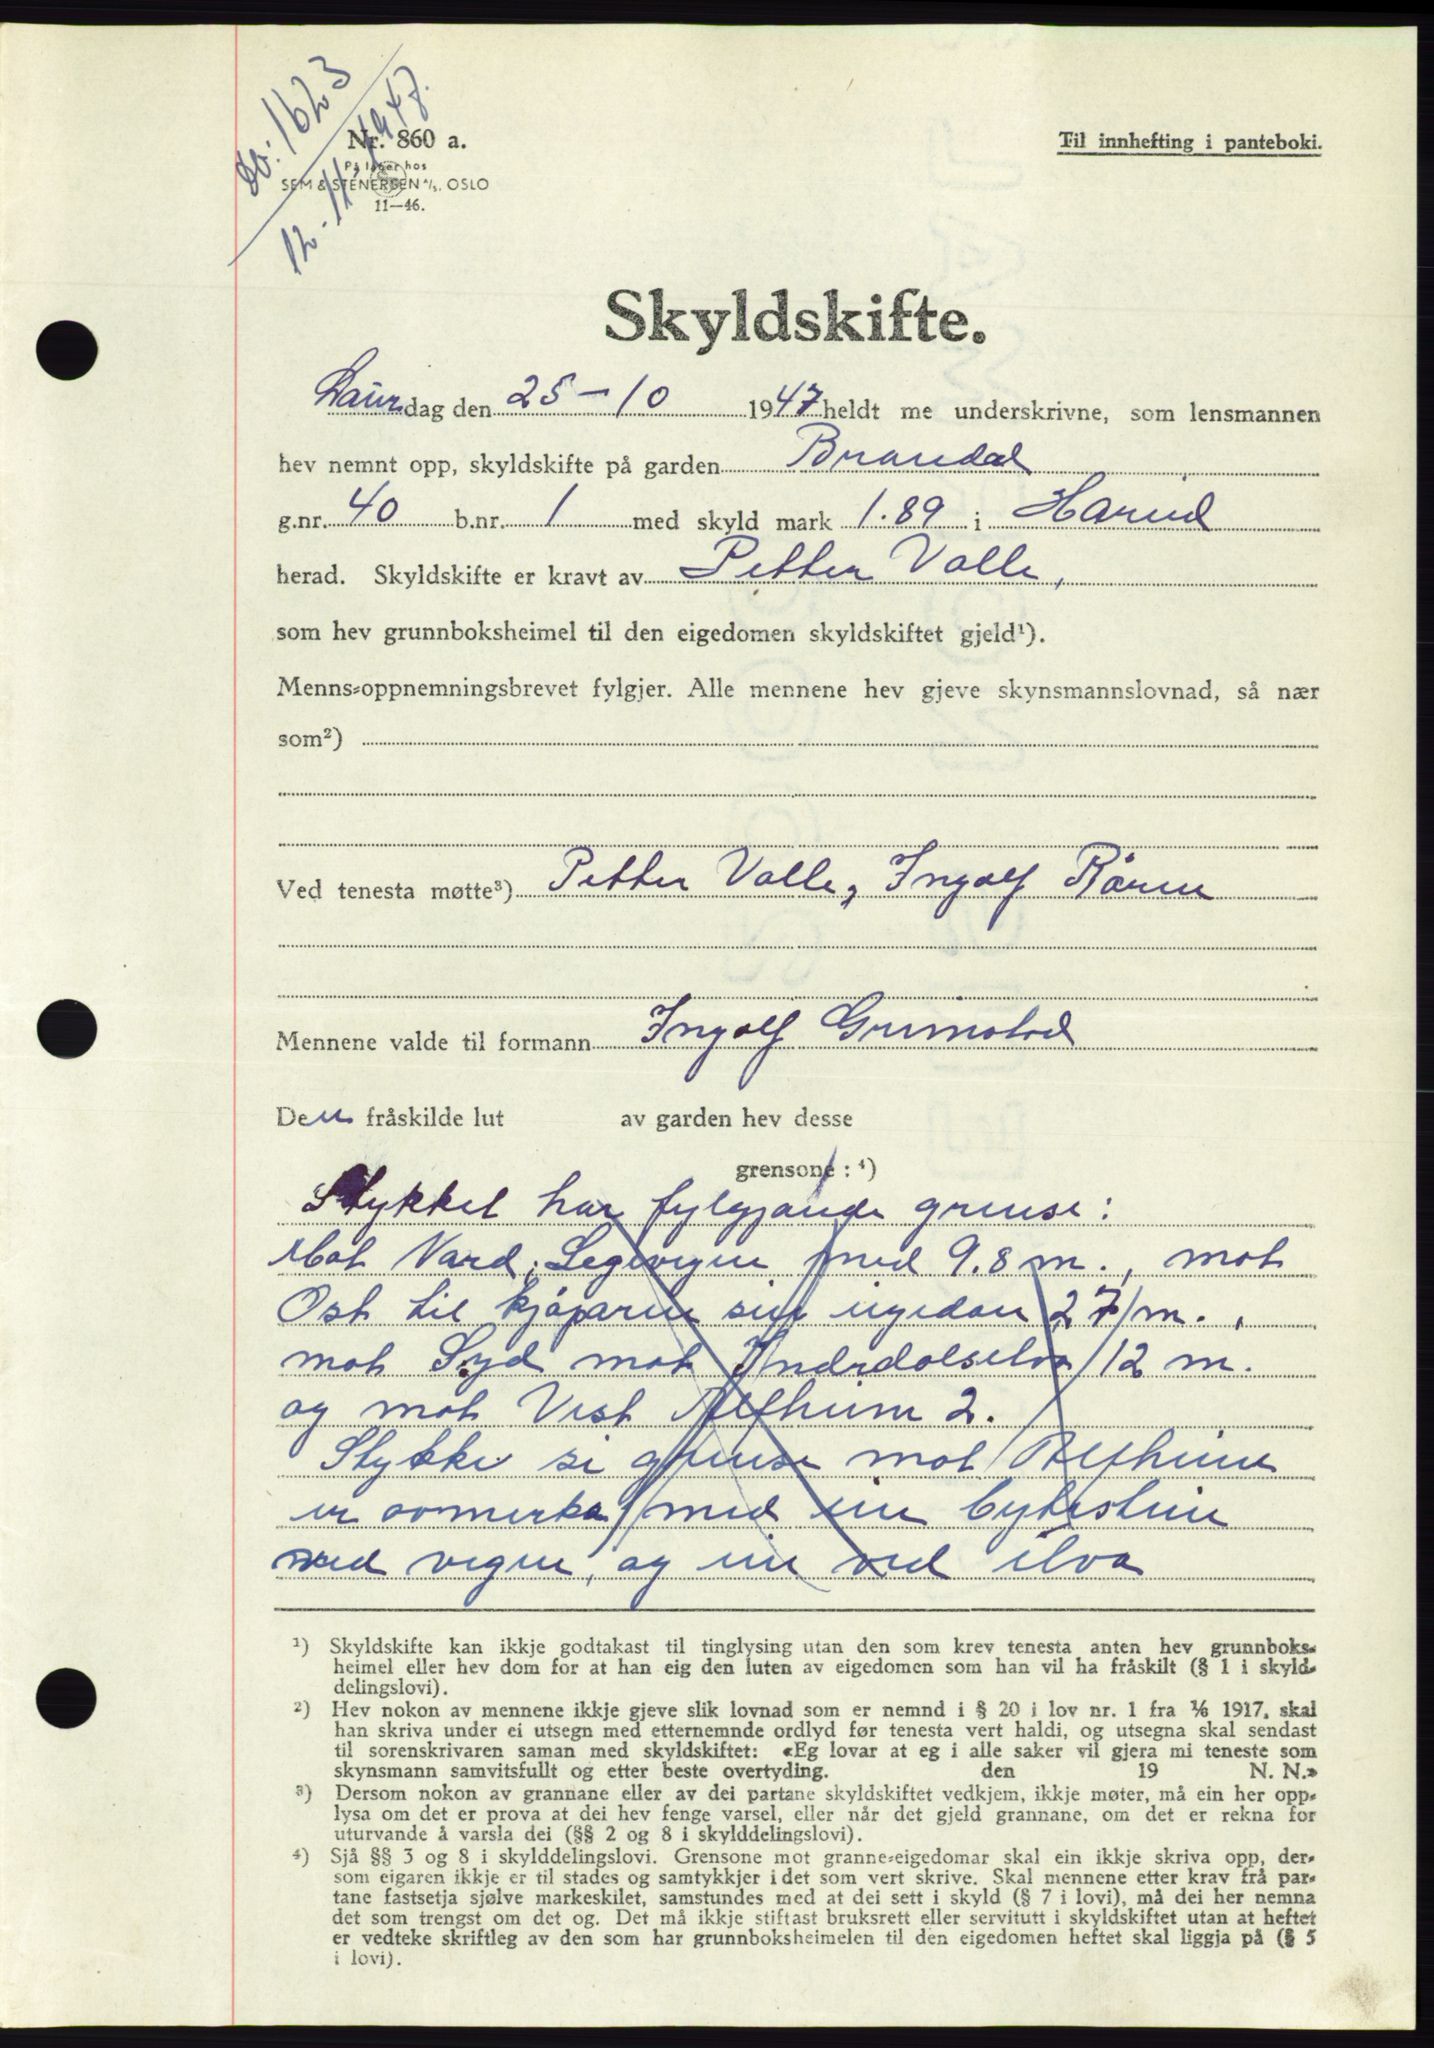 Nr. 1623
12.11.1947.
Nr. 860 a.
På lager hos
SEM & STENERSEN A/S, OSLO
11—46.
Til innhefting i panteboki.
Skyldskifte.
Laurdag den 25-10 1947 heldt me underskrivne, som lensmannen
hev nemnt opp, skyldskifte på garden Brandal
g.nr. 40 b.nr. 1 med skyld mark 1.89 i Hareid
herad. Skyldskifte er kravt av Petter Valle,
som hev grunnboksheimel til den eigedomen skyldskiftet gjeld¹).
Menns-oppnemningsbrevet fylgjer. Alle mennene hev gjeve skynsmannslovnad, så nær
som²)
Ved tenesta møtte³) Petter Valle, Ingolf Røren
Mennene valde til formann Ingolf Grimstad
Den fråskilde lut av garden hev desse
grensone : ⁴)
Stykket har fylgjande grense:
Mot Nord, Legevegen med 9.8 m., mot
Ost til kjøparen sin eigedom 27 m.,
mot Syd mot Indrdalselva 12 m.
og mot Vest Alfheim 2.
Stykke si grense mot Alfheim
er avmerka med ein bytestein
ved vegen, og ein ved elva
¹) Skyldskifte kan ikkje godtakast til tinglysing utan den som krev tenesta anten hev grunnboks-
heimel eller hev dom for at han eig den luten av eigedomen som han vil ha fråskilt (§ 1 i skyld-
delingslovi).
²) Hev nokon av mennene ikkje gjeve slik lovnad som er nemnd i § 20 i lov nr. 1 fra 1/6 1917, skal
han skriva under ei utsegn med etternemnde ordlyd før tenesta vert haldi, og utsegna skal sendast
til sorenskrivaren saman med skyldskiftet: «Eg lovar at eg i alle saker vil gjera mi teneste som
skynsmann samvitsfullt og etter beste overtyding. den 19 N. N.»
³) Dersom nokon av grannane eller av dei partane skyldskiftet vedkjem, ikkje møter, må ein her opp-
lysa om det er prova at dei hev fenge varsel, eller når det gjeld grannane, om det er rekna for
uturvande å varsla dei (§§ 2 og 8 i skylddelingslovi).
⁴) Sjå §§ 3 og 8 i skylddelingslovi. Grensone mot granne-eigedomar skal ein ikkje skriva opp, der-
som eigaren ikkje er til stades og samtykkjer i det som vert skrive. Skal mennene etter krav frå par-
tane fastsetja sjølve markeskilet, samstundes med at dei sett i skyld (§ 7 i lovi), må dei her nemna
det som trengst om det og. Det må ikkje stiftast bruksrett eller servitutt i skyldskiftet utan at heftet
er vedteke skriftleg av den som har grunnboksheimelen til den eigedomen heftet skal liggja på (§ 5
i lovi).